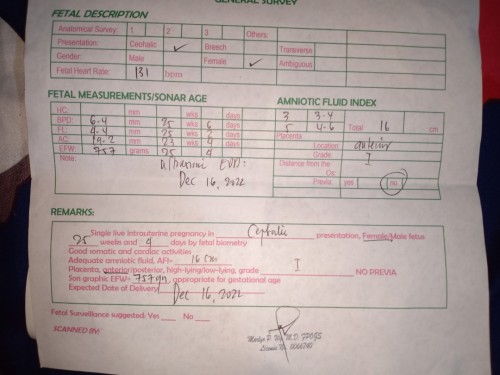 GENERAL SURVEY
FETAL DESCRIPTION
Anatomical Survey: 1 2 3 Others:
Presentation: Cephalic ✓ Breech Transverse
Gender: Male Female ✓ Ambiguous
Fetal Heart Rate: 131 bpm
FETAL MEASUREMENTS/SONAR AGE
HC: mm wks days
BPD: 6.4 mm 25 wks 6 days
FL: 4.4 mm 25 wks days
AC: 19.2 mm 23 wks days
EFW: 757 grams 25 4
Note: Ultrasound EDD:
Dec 16, 2022
AMNIOTIC FLUID INDEX
3 3.4
5 4.6 Total 16 cm
Placenta
Location: anterior
Grade: I
Distance from the
Os:
Previa: yes no
REMARKS:
Single live intrauterine pregnancy in Cephalic presentation, Female/Male fetus
25 weeks and 4 days by fetal biometry
Good somatic and cardiac activities
Adequate amniotic fluid, AFI= 16 cm
Placenta, anterior/posterior, high-lying/low-lying, grade I NO PREVIA
Son graphic EFW= 757 gm, appropriate for gestational age
Expected Date of Delivery Dec 16, 2022
Fetal Surveillance suggested: Yes No
SCANNED BY:
M.D. FPOGS
License No.